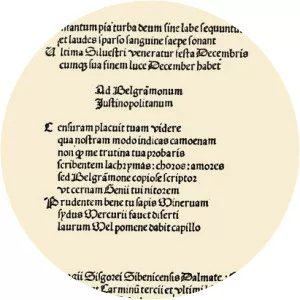 tantum pia turba deum sine labe sequuntur
et laudes sparso sanguine saepe sonant
Ultima Siluestri veneratur festa Decembris
cumqȝ sua finem luce December habet
Ad Belgrãmonum
Justinopolitanum
Censuram placuit tuam videre
qua nostram modo indicas camoenam
non qȝ me trutina tua probaris
scribentem lachrymas: choros: amores
sed Belgrãmone copiose scriptor
vt cernam Genii tui nitorem
Prudentem bene tu sapis Mineruam
sydus Mercurii fauet diserti
laurum Melpomene dabit capillo
Sisgorei Sibenicensis Dalmate
Carminũ tercii et vltimi